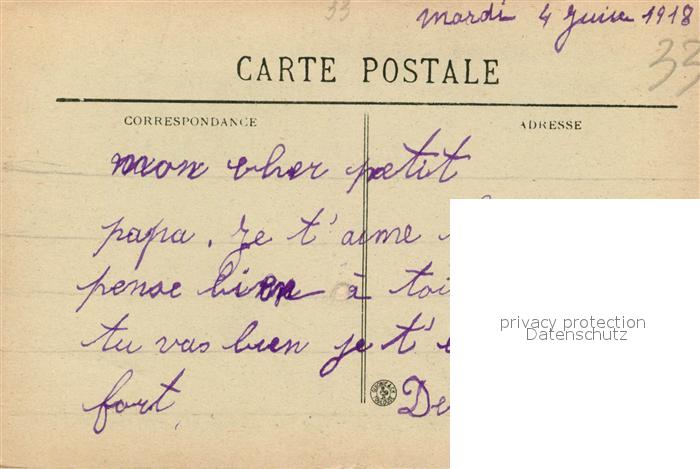 33
mardi 4 Juin 1918
33
CARTE POSTALE
CORRESPONDANCE
ADRESSE
mon cher petit
papa. Je t'aime
pense bien à toi
tu vas bien je t'e
fort De
privacy protection
Datenschutz